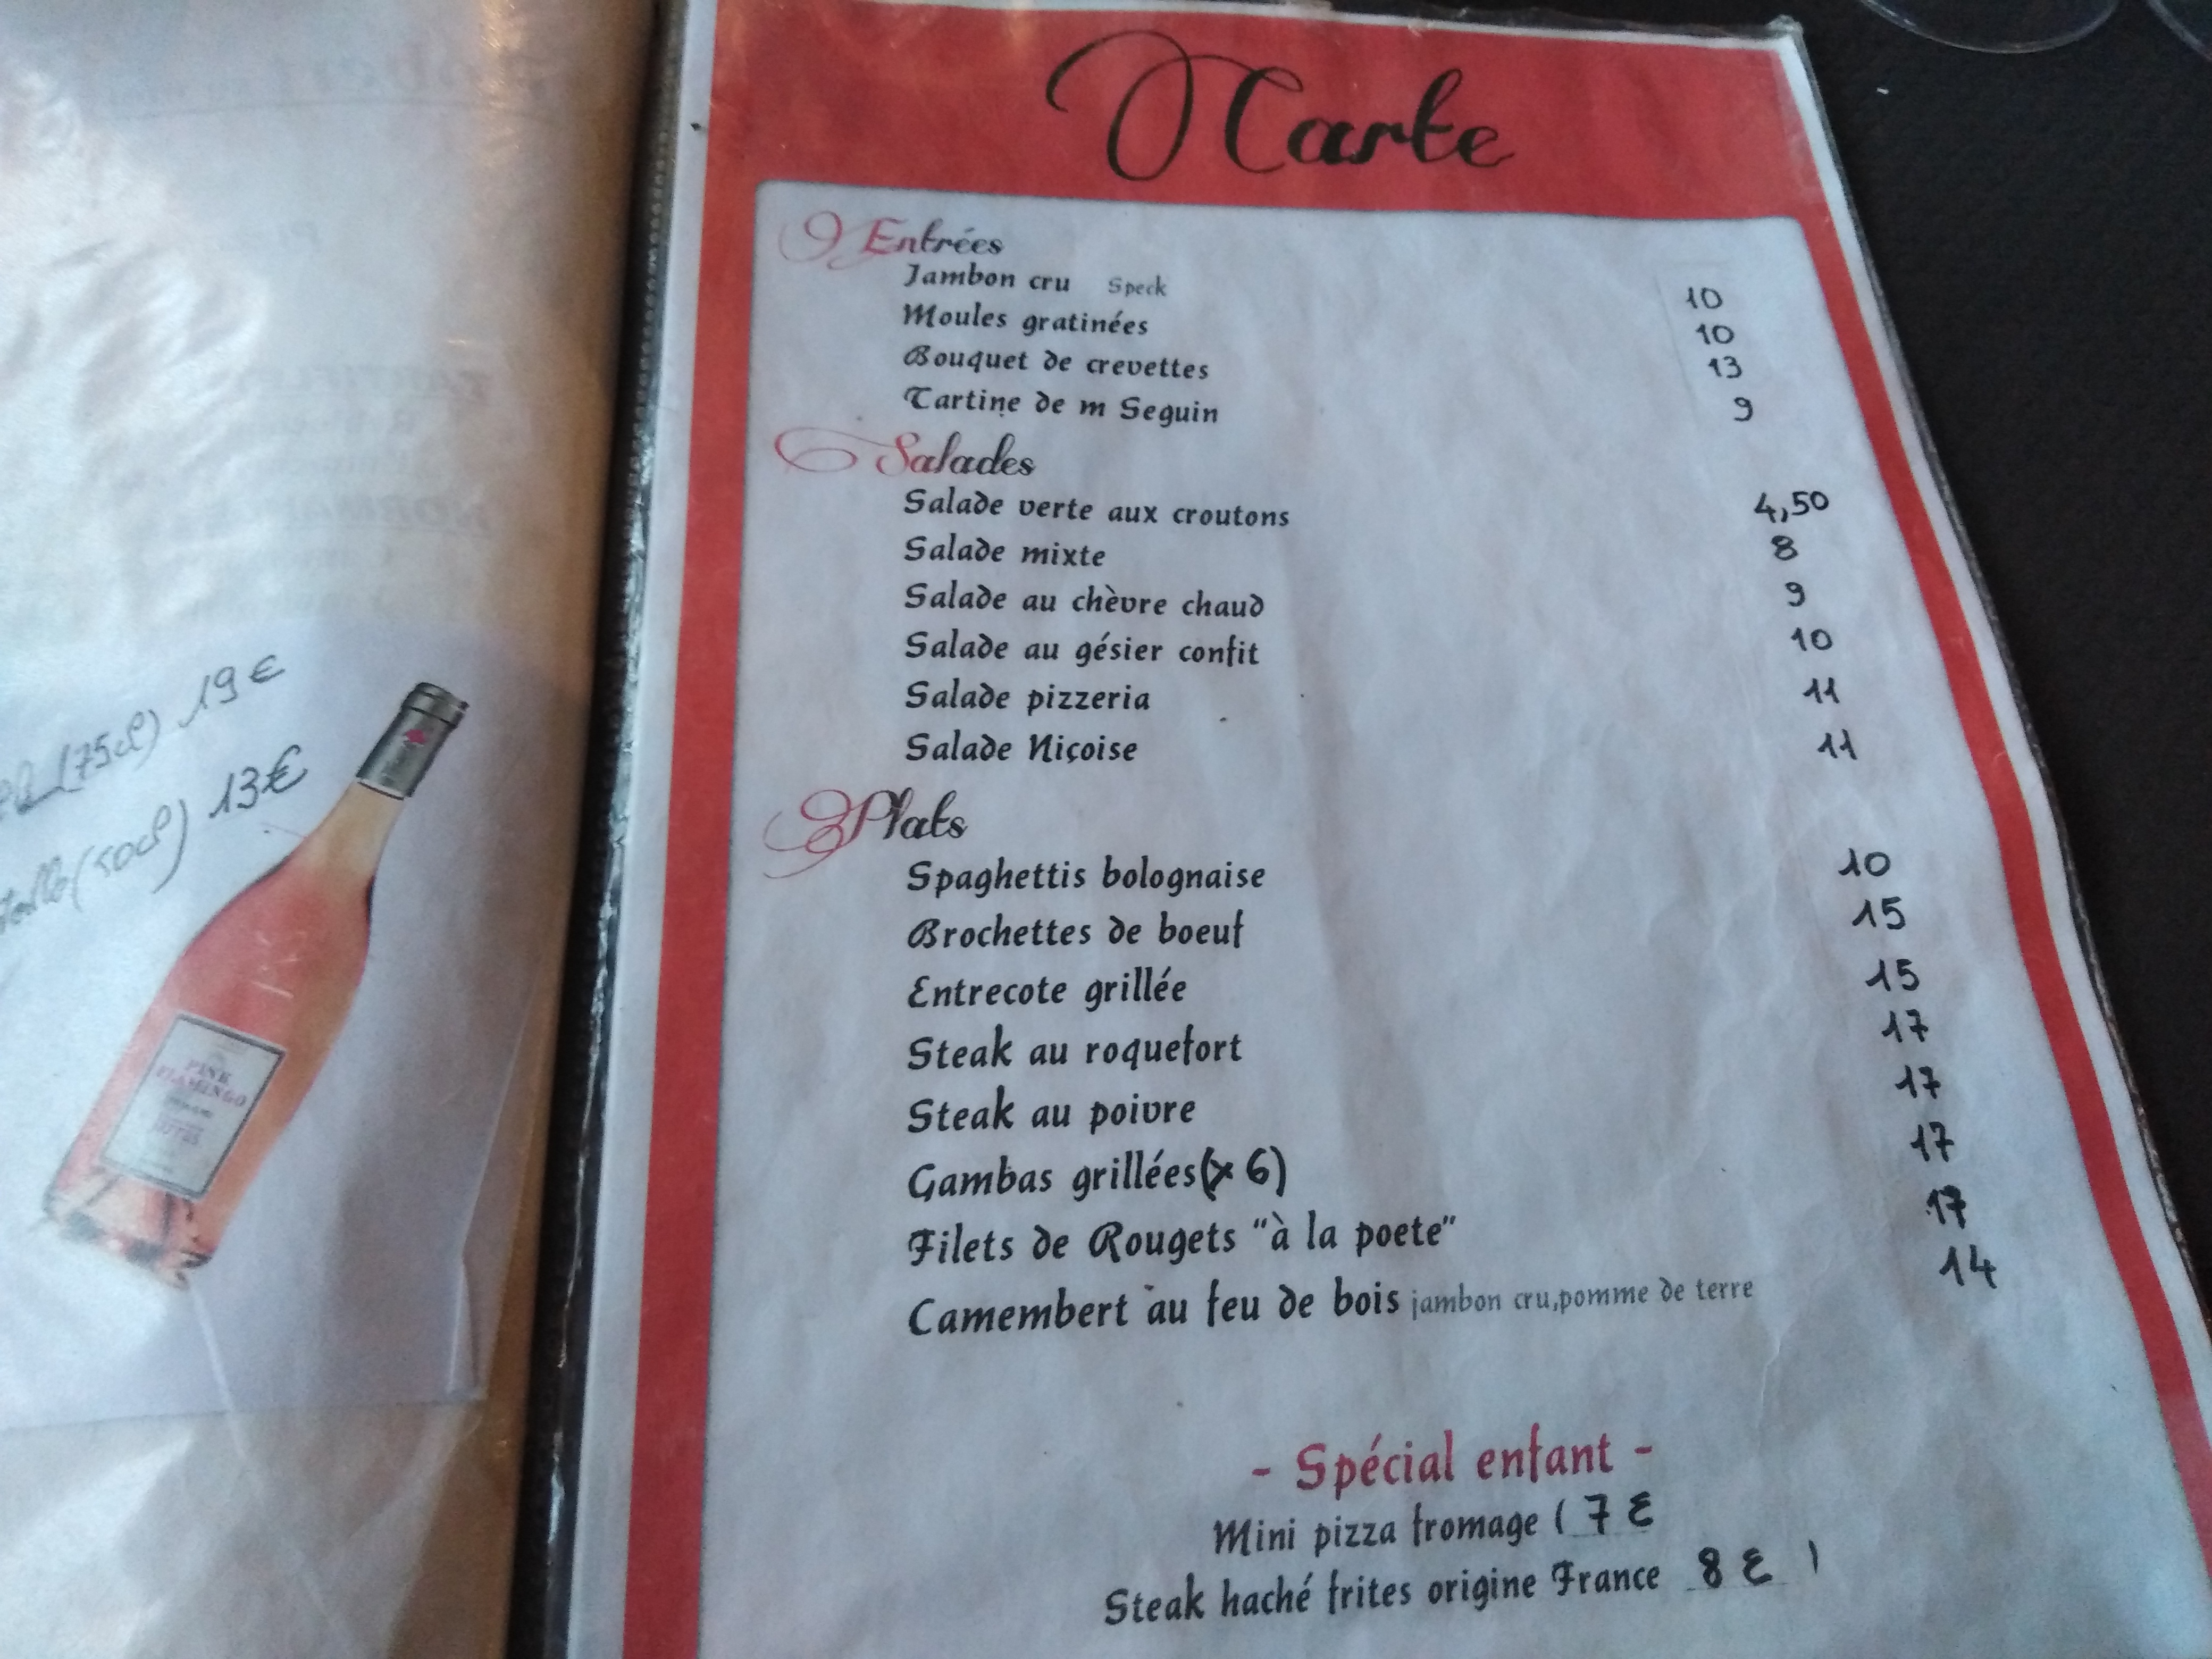 19€
(75cl)
13€
(50cl)
PINK
FLAMINGO
Carte
Entrées
Jambon cru Speck 10
Moules gratinées 10
Bouquet de crevettes 13
Tartine de m Seguin 9
Salades
Salade verte aux croutons 4,50
Salade mixte 8
Salade au chèvre chaud 9
Salade au gésier confit 10
Salade pizzeria 11
Salade Niçoise 11
Plats
Spaghettis bolognaise 10
Brochettes de boeuf 15
Entrecote grillée 15
Steak au roquefort 17
Steak au poivre 17
Gambas grillées(x 6) 17
Filets de Rougets "à la poete" 17
Camembert au feu de bois jambon cru,pomme de terre 14
- Spécial enfant -
Mini pizza fromage ( 7 €
Steak haché frites origine France 8 € )